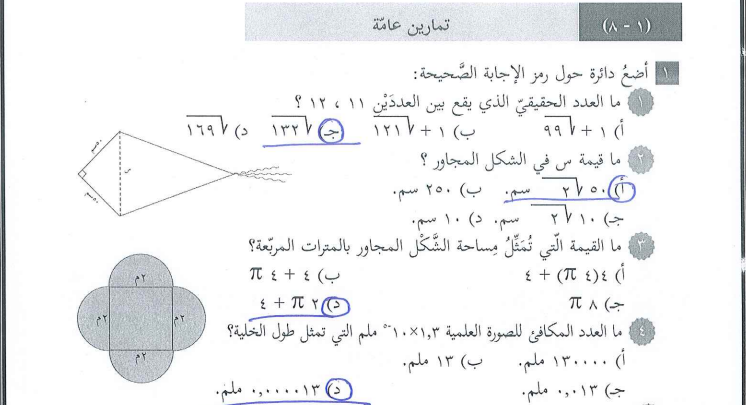 (١ - ٨) تمارين عامّة
١ أضعُ دائرة حول رمز الإجابة الصَّحيحة:
١ ما العدد الحقيقيّ الذي يقع بين العددَيْن ١١ ، ١٢ ؟
أ) ١ + √٩٩ ب) ١ + √١٢١ جـ) √١٣٢ د) √١٦٩
٢ ما قيمة س في الشكل المجاور ؟
أ) ٥٠ √٢ سم. ب) ٢٥٠ سم.
جـ) ١٠ √٢ سم. د) ١٠ سم.
٥٠سم
س
٥٠سم
٣ ما القيمة الّتي تُمَثِّلُ مِساحة الشَّكْل المجاور بالمترات المربّعة؟
أ) ٤(٤ π) + ٤ ب) ٤ + ٤ π
جـ) ٨ π د) ٢ π + ٤
٢م
٢م ٢م
٢م
٤ ما العدد المكافئ للصورة العلمية ١,٣×١٠⁻⁵ ملم التي تمثل طول الخلية؟
أ) ١٣٠٠٠٠ ملم. ب) ١٣ ملم.
جـ) ٠,٠١٣ ملم. د) ٠,٠٠٠٠١٣ ملم.